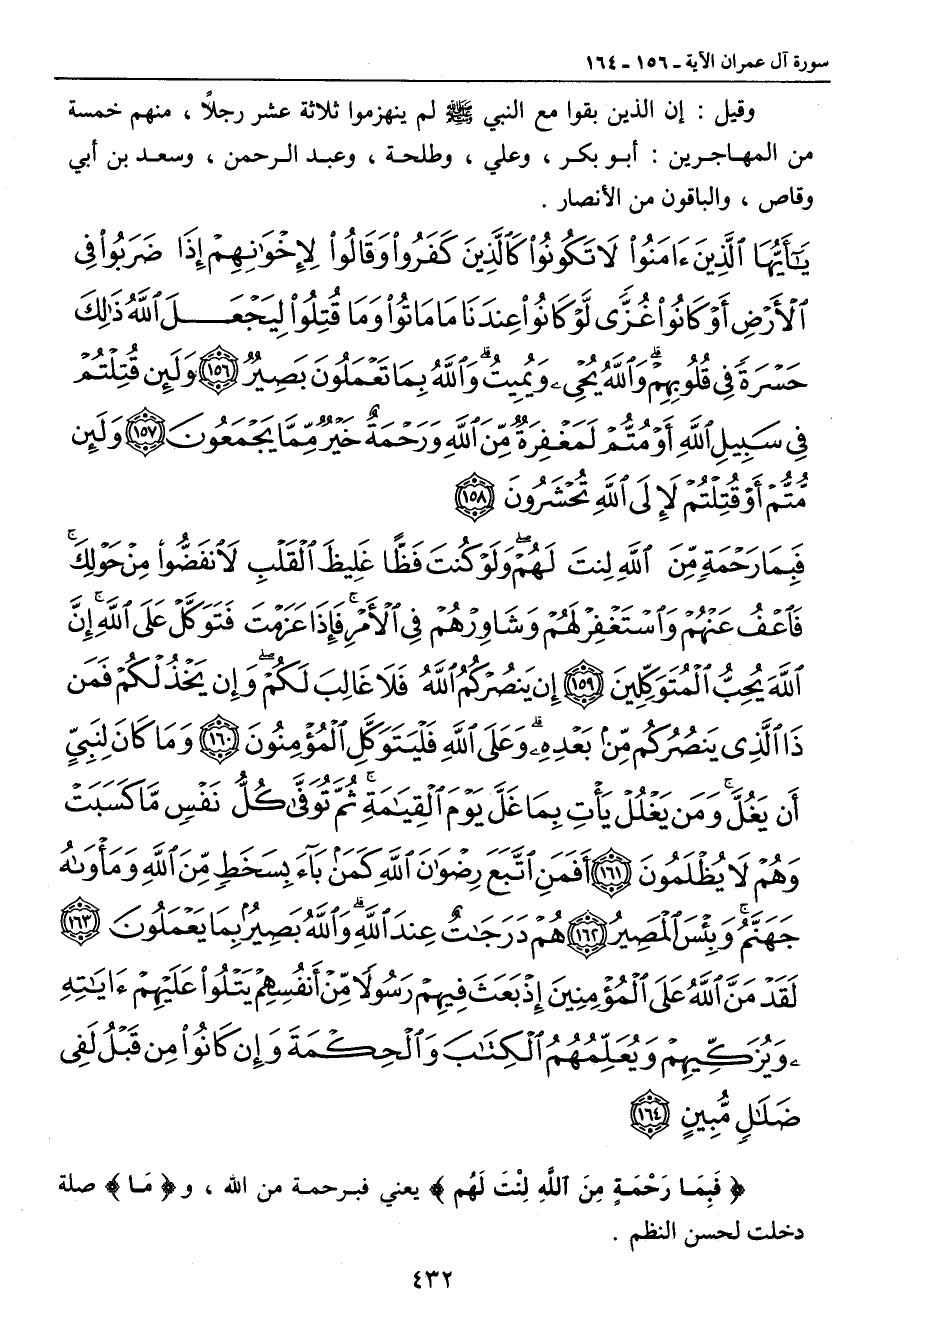 سورة آل عمران الآية ـ ١٥٦ ـ ١٦٤
وقيل : إن الذين بقوا مع النبي ﷺ لم ينهزموا ثلاثة عشر رجلاً ، منهم خمسة
من المهاجرين : أبو بكر ، وعلي ، وطلحة ، وعبد الرحمن ، وسعد بن أبي
وقاص ، والباقون من الأنصار .
يَٰٓأَيُّهَا ٱلَّذِينَ ءَامَنُوا۟ لَا تَكُونُوا۟ كَٱلَّذِينَ كَفَرُوا۟ وَقَالُوا۟ لِإِخْوَٰنِهِمْ إِذَا ضَرَبُوا۟ فِى
ٱلْأَرْضِ أَوْ كَانُوا۟ غُزًّى لَّوْ كَانُوا۟ عِندَنَا مَا مَاتُوا۟ وَمَا قُتِلُوا۟ لِيَجْعَلَ ٱللَّهُ ذَٰلِكَ
حَسْرَةً فِى قُلُوبِهِمْ ۗ وَٱللَّهُ يُحْىِۦ وَيُمِيتُ ۗ وَٱللَّهُ بِمَا تَعْمَلُونَ بَصِيرٌ ١٥٦ وَلَئِن قُتِلْتُمْ
فِى سَبِيلِ ٱللَّهِ أَوْ مُتُّمْ لَمَغْفِرَةٌ مِّنَ ٱللَّهِ وَرَحْمَةٌ خَيْرٌ مِّمَّا يَجْمَعُونَ ١٥٧ وَلَئِن
مُّتُّمْ أَوْ قُتِلْتُمْ لَإِلَى ٱللَّهِ تُحْشَرُونَ ١٥٨
فَبِمَا رَحْمَةٍ مِّنَ ٱللَّهِ لِنتَ لَهُمْ ۖ وَلَوْ كُنتَ فَظًّا غَلِيظَ ٱلْقَلْبِ لَٱنفَضُّوا۟ مِنْ حَوْلِكَ ۖ
فَٱعْفُ عَنْهُمْ وَٱسْتَغْفِرْ لَهُمْ وَشَاوِرْهُمْ فِى ٱلْأَمْرِ ۖ فَإِذَا عَزَمْتَ فَتَوَكَّلْ عَلَى ٱللَّهِ ۚ إِنَّ
ٱللَّهَ يُحِبُّ ٱلْمُتَوَكِّلِينَ ١٥٩ إِن يَنصُرْكُمُ ٱللَّهُ فَلَا غَالِبَ لَكُمْ ۖ وَإِن يَخْذُلْكُمْ فَمَن
ذَا ٱلَّذِى يَنصُرُكُم مِّنۢ بَعْدِهِۦ ۗ وَعَلَى ٱللَّهِ فَلْيَتَوَكَّلِ ٱلْمُؤْمِنُونَ ١٦٠ وَمَا كَانَ لِنَبِىٍّ
أَن يَغُلَّ ۚ وَمَن يَغْلُلْ يَأْتِ بِمَا غَلَّ يَوْمَ ٱلْقِيَٰمَةِ ۚ ثُمَّ تُوَفَّىٰ كُلُّ نَفْسٍ مَّا كَسَبَتْ
وَهُمْ لَا يُظْلَمُونَ ١٦١ أَفَمَنِ ٱتَّبَعَ رِضْوَٰنَ ٱللَّهِ كَمَنۢ بَآءَ بِسَخَطٍ مِّنَ ٱللَّهِ وَمَأْوَىٰهُ
جَهَنَّمُ ۚ وَبِئْسَ ٱلْمَصِيرُ ١٦٢ هُمْ دَرَجَٰتٌ عِندَ ٱللَّهِ ۗ وَٱللَّهُ بَصِيرٌۢ بِمَا يَعْمَلُونَ ١٦٣
لَقَدْ مَنَّ ٱللَّهُ عَلَى ٱلْمُؤْمِنِينَ إِذْ بَعَثَ فِيهِمْ رَسُولًا مِّنْ أَنفُسِهِمْ يَتْلُوا۟ عَلَيْهِمْ ءَايَٰتِهِ
ۦ وَيُزَكِّيهِمْ وَيُعَلِّمُهُمُ ٱلْكِتَٰبَ وَٱلْحِكْمَةَ وَإِن كَانُوا۟ مِن قَبْلُ لَفِى
ضَلَٰلٍ مُّبِينٍ ١٦٤
﴿ فَبِمَا رَحْمَةٍ مِنَ ٱللَّهِ لِنْتَ لَهُم ﴾ يعني فبرحمة من الله ، و﴿ مَا ﴾ صلة
دخلت لحسن النظم .
٤٣٢